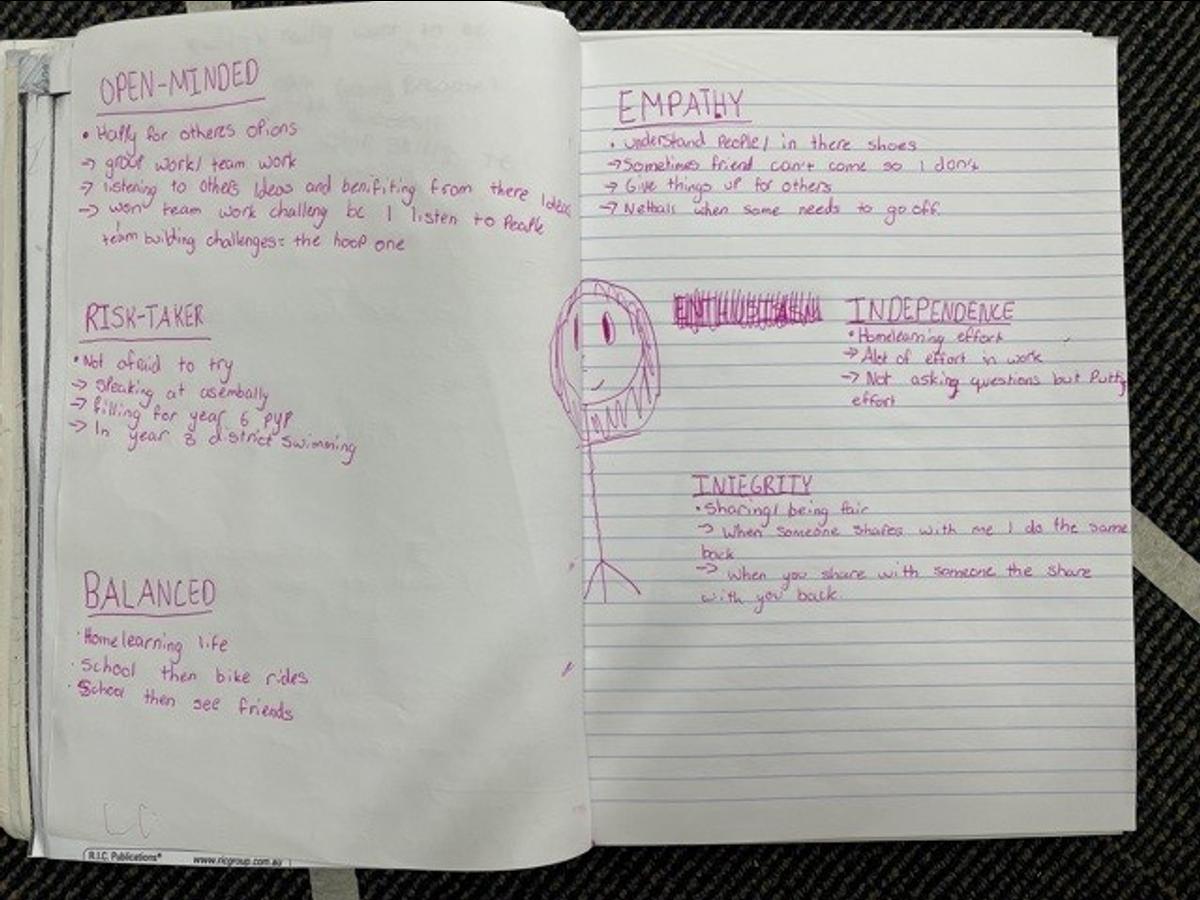 OPEN-MINDED
• Happy for otheres opions
→ group work/ team work
→ listening to others Ideas and benifiting from there Ideas
→ won team work challeng bc I listen to People
team building challenges: the hoop one
RISK-TAKER
• Not afraid to try
→ speaking at asembally
→ filling for year 6 PYP
→ In year 3 district swimming
BALANCED
• Homelearning life
• School then bike rides
• School then see friends
R.I.C. Publications® www.ricgroup.com.au
EMPATHY
• understand People/ in there shoes
→ Sometimes friend can't come so I don't
→ Give things up for others
→ Netball when some needs to go off.
INDEPENDENCE
• Homelearning effort
→ Alot of effort in work
→ Not asking questions but Putting
effort
INTEGRITY
• Sharing/ being fair
→ When someone shares with me I do the same
back
→ When you share with someone the share
with you back.